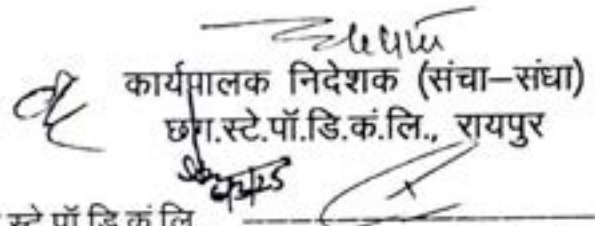 कार्यपालक निदेशक (संचा–संधा)
छग.स्टे.पॉ.डि.कं.लि., रायपुर
स्टे.पॉ.डि.कं.लि.